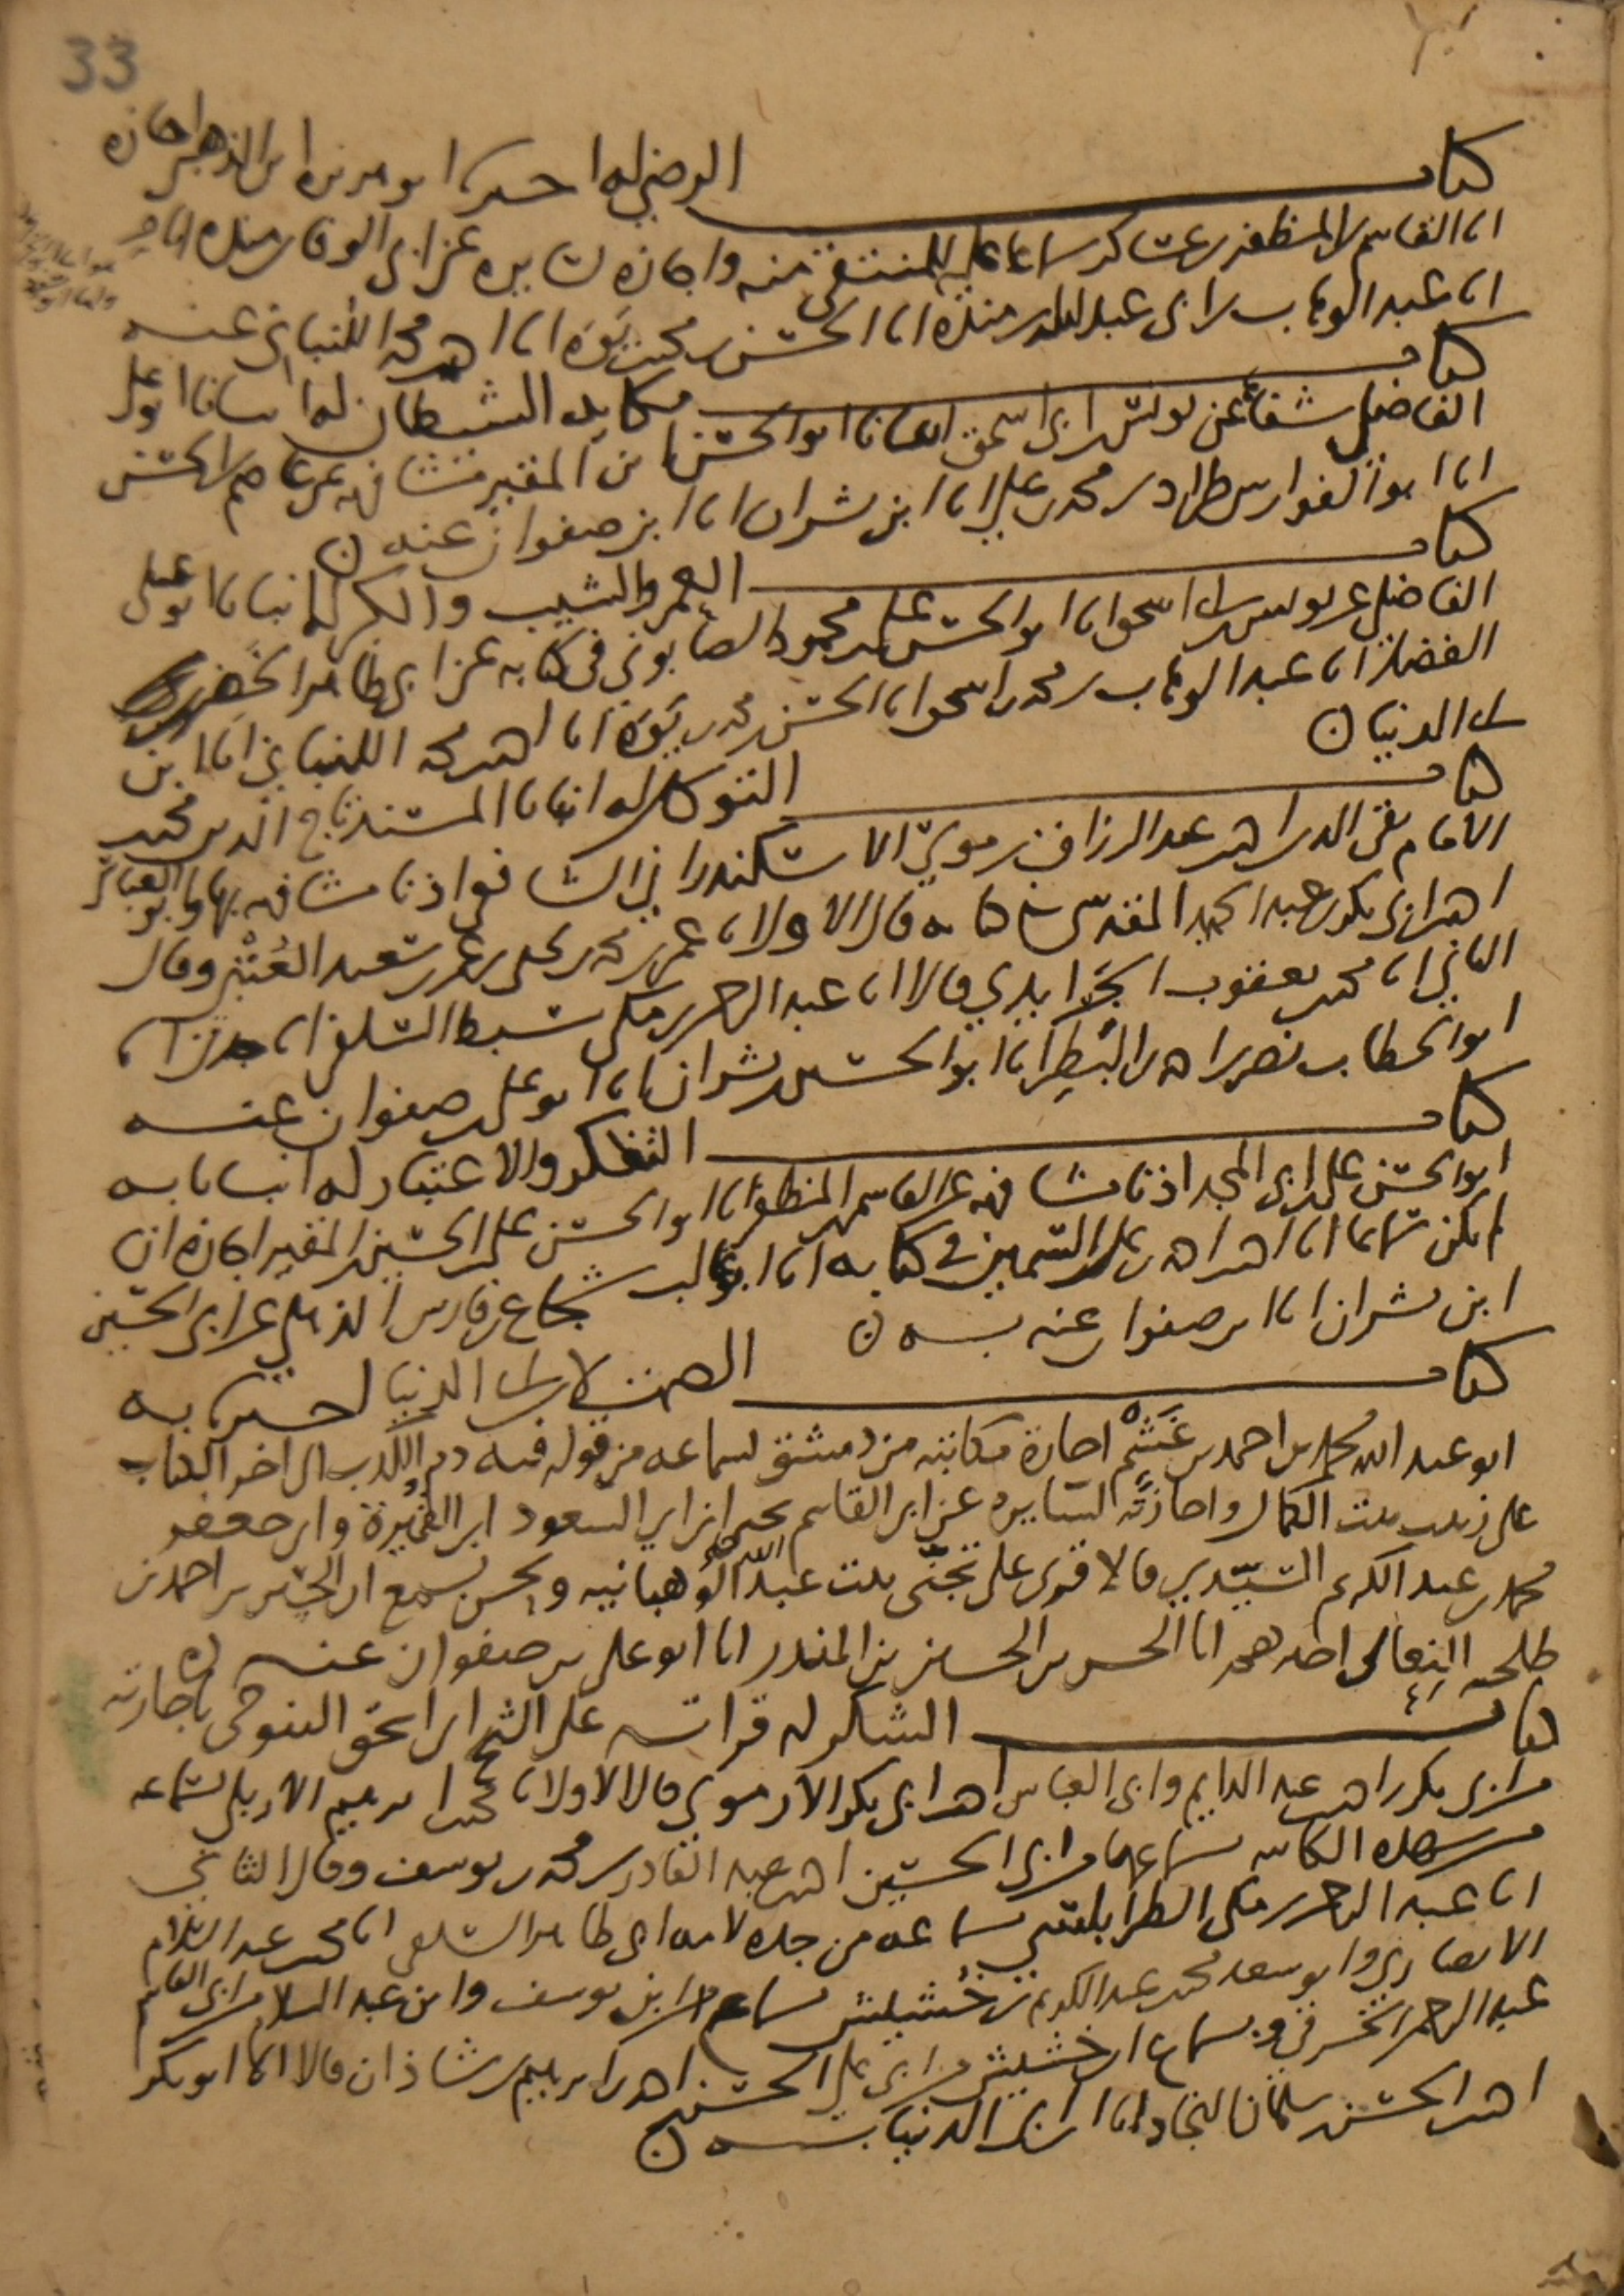 33
كتاب الرضى له اخبرنا ابو هريرة ابن الذهبي اجازة
انا القاسم بن المظفر بن عساكر سماعا عليه للمنتقى منه واجازة لسايره عن ابي الوفا بن منده انا
انا عبد الوهاب بن ابي عبد الله بن منده انا الحسن بن محمد بن يوه انا احمد بن محمد اللنباني عنه
كتاب مكايد الشيطان له انبانا ابو علي
الفاضلي شفاها عن يونس بن ابي اسحق انبانا ابو الحسن بن المقير مشافهة عن
انا ابو الفوارس طراد بن محمد بن علي انا ابن بشران انا ابن صفوان عنه ن
كتاب العمر والشيب والكبر له انبانا ابو علي
الفاضلي عن يونس بن ابي اسحق انا ابو الحسن علي بن محمود الصابوني في كتابه عن ابي طاهر الخضر بن
الفضل انا عبد الوهاب بن محمد بن اسحق انا الحسن بن محمد بن يوه انا احمد بن محمد اللنباني انا ابن
ابي الدنيا ن
كتاب التوكل له انبانا المسند تاج الدين محمد بن
الامام تقي الدين احمد عبد الرزاق بن موسى الاسكندراني الشافعي اذنا مشافهة بها وابو العباس
احمد بن ابي بكر بن عبد الحميد المقدسي في كتابه قال الاول انا عمر بن محمد بن يحيى بن عمر بن سعيد العتبي وقال
الثاني انا محمد بن يعقوب الجرايدي قالا انا عبد الرحمن بن مكي سبط السلفي انا جدي انا
ابو الخطاب نصر بن احمد بن البطر انا ابو الحسين بن بشران انا ابو علي بن صفوان عنه
كتاب التفكر والاعتبار له انبانا به
ابو الحسن علي بن ابي المجد اذنا مشافهة عن القاسم بن المظفر انا ابو الحسن علي بن الحسين بن المقير اجازة ان
لم يكن سماعا انا احمد بن احمد بن علي بن السمين في كتابه انا ابو غالب شجاع بن فارس الذهلي عن ابي الحسين
ابن بشران انا ابن صفوان عنه به ن
كتاب الصمت لابن ابي الدنيا اخبرنا به
ابو عبد الله محمد بن احمد بن غشم اجازة مكاتبة من دمشق لسماعه من قوله فيه ذم الكذب الى اخر الكتاب
على زينب بنت الكمال واجازته لسايره عن ابي القاسم يحيى بن ابي السعود ابن القميرة وابي جعفر
محمد بن عبد الكريم السيدي قالا قرئ على تجني بنت عبد الله الوهبانية ونحن نسمع انا الحسين بن احمد بن
طلحة النعالي احمد بن محمد انا الحسن بن الحسين بن المنذر انا ابو علي بن صفوان عنه ن
كتاب الشكر له قراته على الشيخ ابي اسحق التنوخي باجازته
من ابي بكر بن احمد بن عبد الدايم وابي العباس احمد بن ابي بكر الارموي قال الاول انا محمد بن ابرهيم الاربلي بسماعه
من شهدة الكاتبة بسماعها من ابي الحسين احمد بن عبد القادر بن محمد بن يوسف وقال الثاني
انا عبد الرحمن بن مكي الطرابلسي بسماعه من جده لامه ابي طاهر السلفي انا محمد بن عبد السلام
الانصاري وابو سعد محمد بن عبد الكريم بن خشيش بسماع ابن يوسف وابن عبد السلام من ابي القاسم
عبد الرحمن الخرقي وبسماع ابن خشيش من ابي علي الحسن بن احمد بن ابرهيم بن شاذان قالا انا ابو بكر
احمد بن الحسن بن سلمان النجاد انا ابن ابي الدنيا به ن